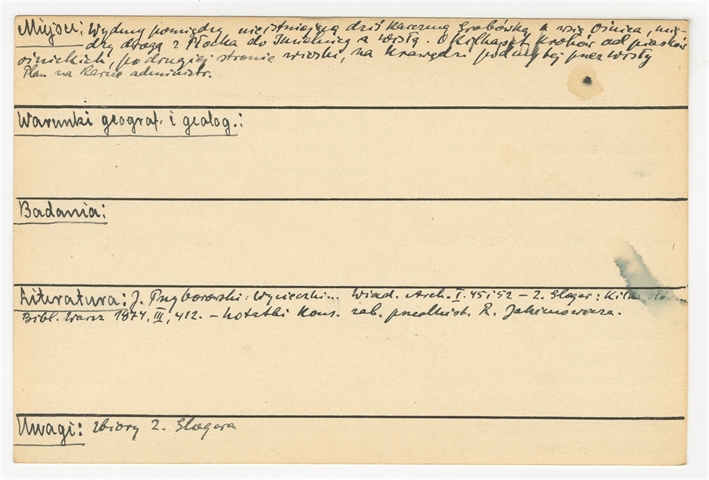 Miejsc: Wydmy pomiędzy nieistniejącą dziś karczmą Grabówką a wsią Ośnica, mię-
dzy drogą z Płocka do Imielnicy a Wisłą. O kilkaset kroków od piasków
ośnickich, po drugiej stronie wioski, na krawędzi podmytej przez Wisłę
Plan na karcie administr.
Warunki geograf. i geolog.:
Badania:
Literatura: J. Przyborowski: Wycieczki... Wiad. Arch. I. 45 i 52 – Z. Gloger: Kilka
Bibl. Warsz 1874, III, 412. – Notatki Kons. zab. predhist. R. Jakimowicza.
Uwagi: Zbiory Z. Glogera